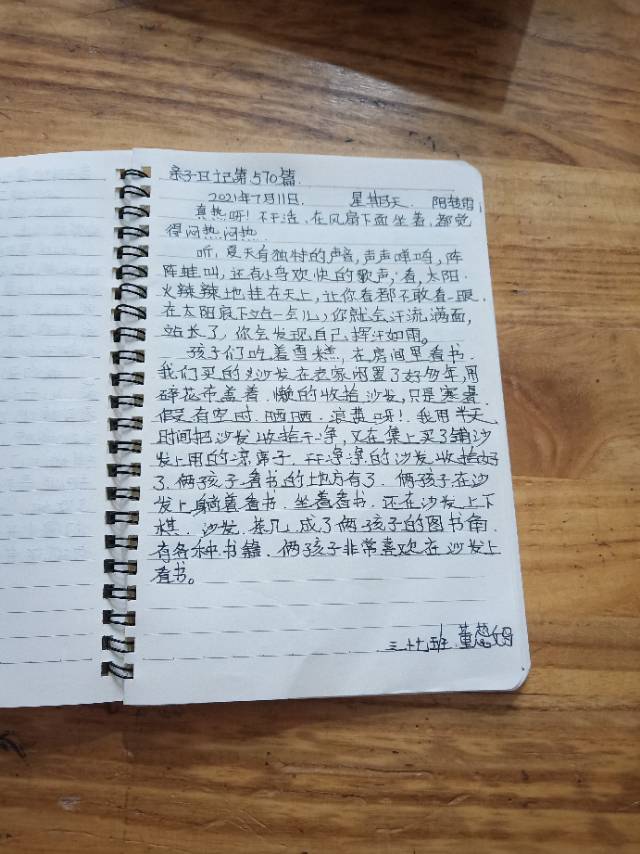 亲子日记第570篇.
2021年7月11日. 星期天 阳转雨
真热呀!不干活.在风扇下面坐着,都觉
得闷热闷热.
听,夏天有独特的声音,声声蝉鸣,阵
阵蛙叫,还有小鸟欢快的歌声;看,太阳.
火辣辣地挂在天上,让你看都不敢看一眼.
在太阳底下站一会儿,你就会汗流满面,
站长了,你会发现自己挥汗如雨。
孩子们吃着雪糕,在房间里看书.
我们买的沙发在老家闲置了好多年,用
碎花布盖着.懒的收拾沙发,只是寒暑
假有空时.晒晒.浪费呀!我用半天
时间把沙发收拾干净,又在集上买了铺沙
发上用的凉席子.干净净的沙发收拾好
了.俩孩子看书的地方有了.俩孩子在沙
发上躺着看书.坐着看书.还在沙发上下
棋.沙发.茶几.成了俩孩子的图书角.
有各种书籍.俩孩子非常喜欢在沙发上
看书。
班.董